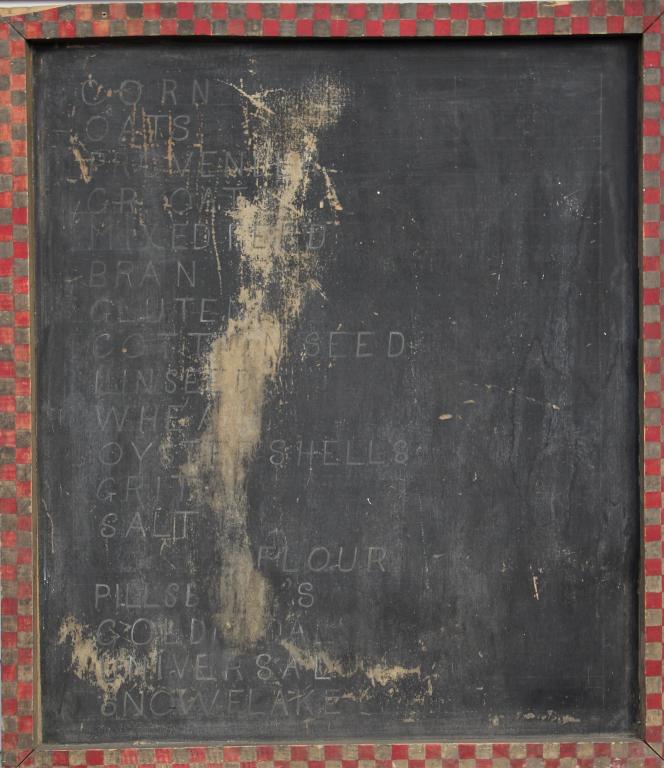 CORN
OATS
PROVENDER
GR. OATS
MIXED FEED
BRAN
GLUTEN
COTTON SEED
LINSEED
WHEAT
OYSTER SHELLS
GRIT
SALT
FLOUR
PILLSBURY'S
GOLD MEDAL
UNIVERSAL
SNOWFLAKE